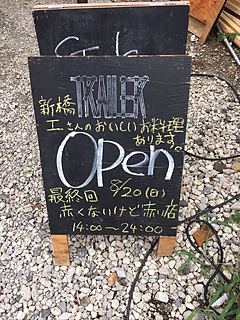 新橋 TRAILER
工さんのおいしいお料理
あります。
Open
最終回 8/20(日)
赤くないけど赤い店
14:00〜24:00